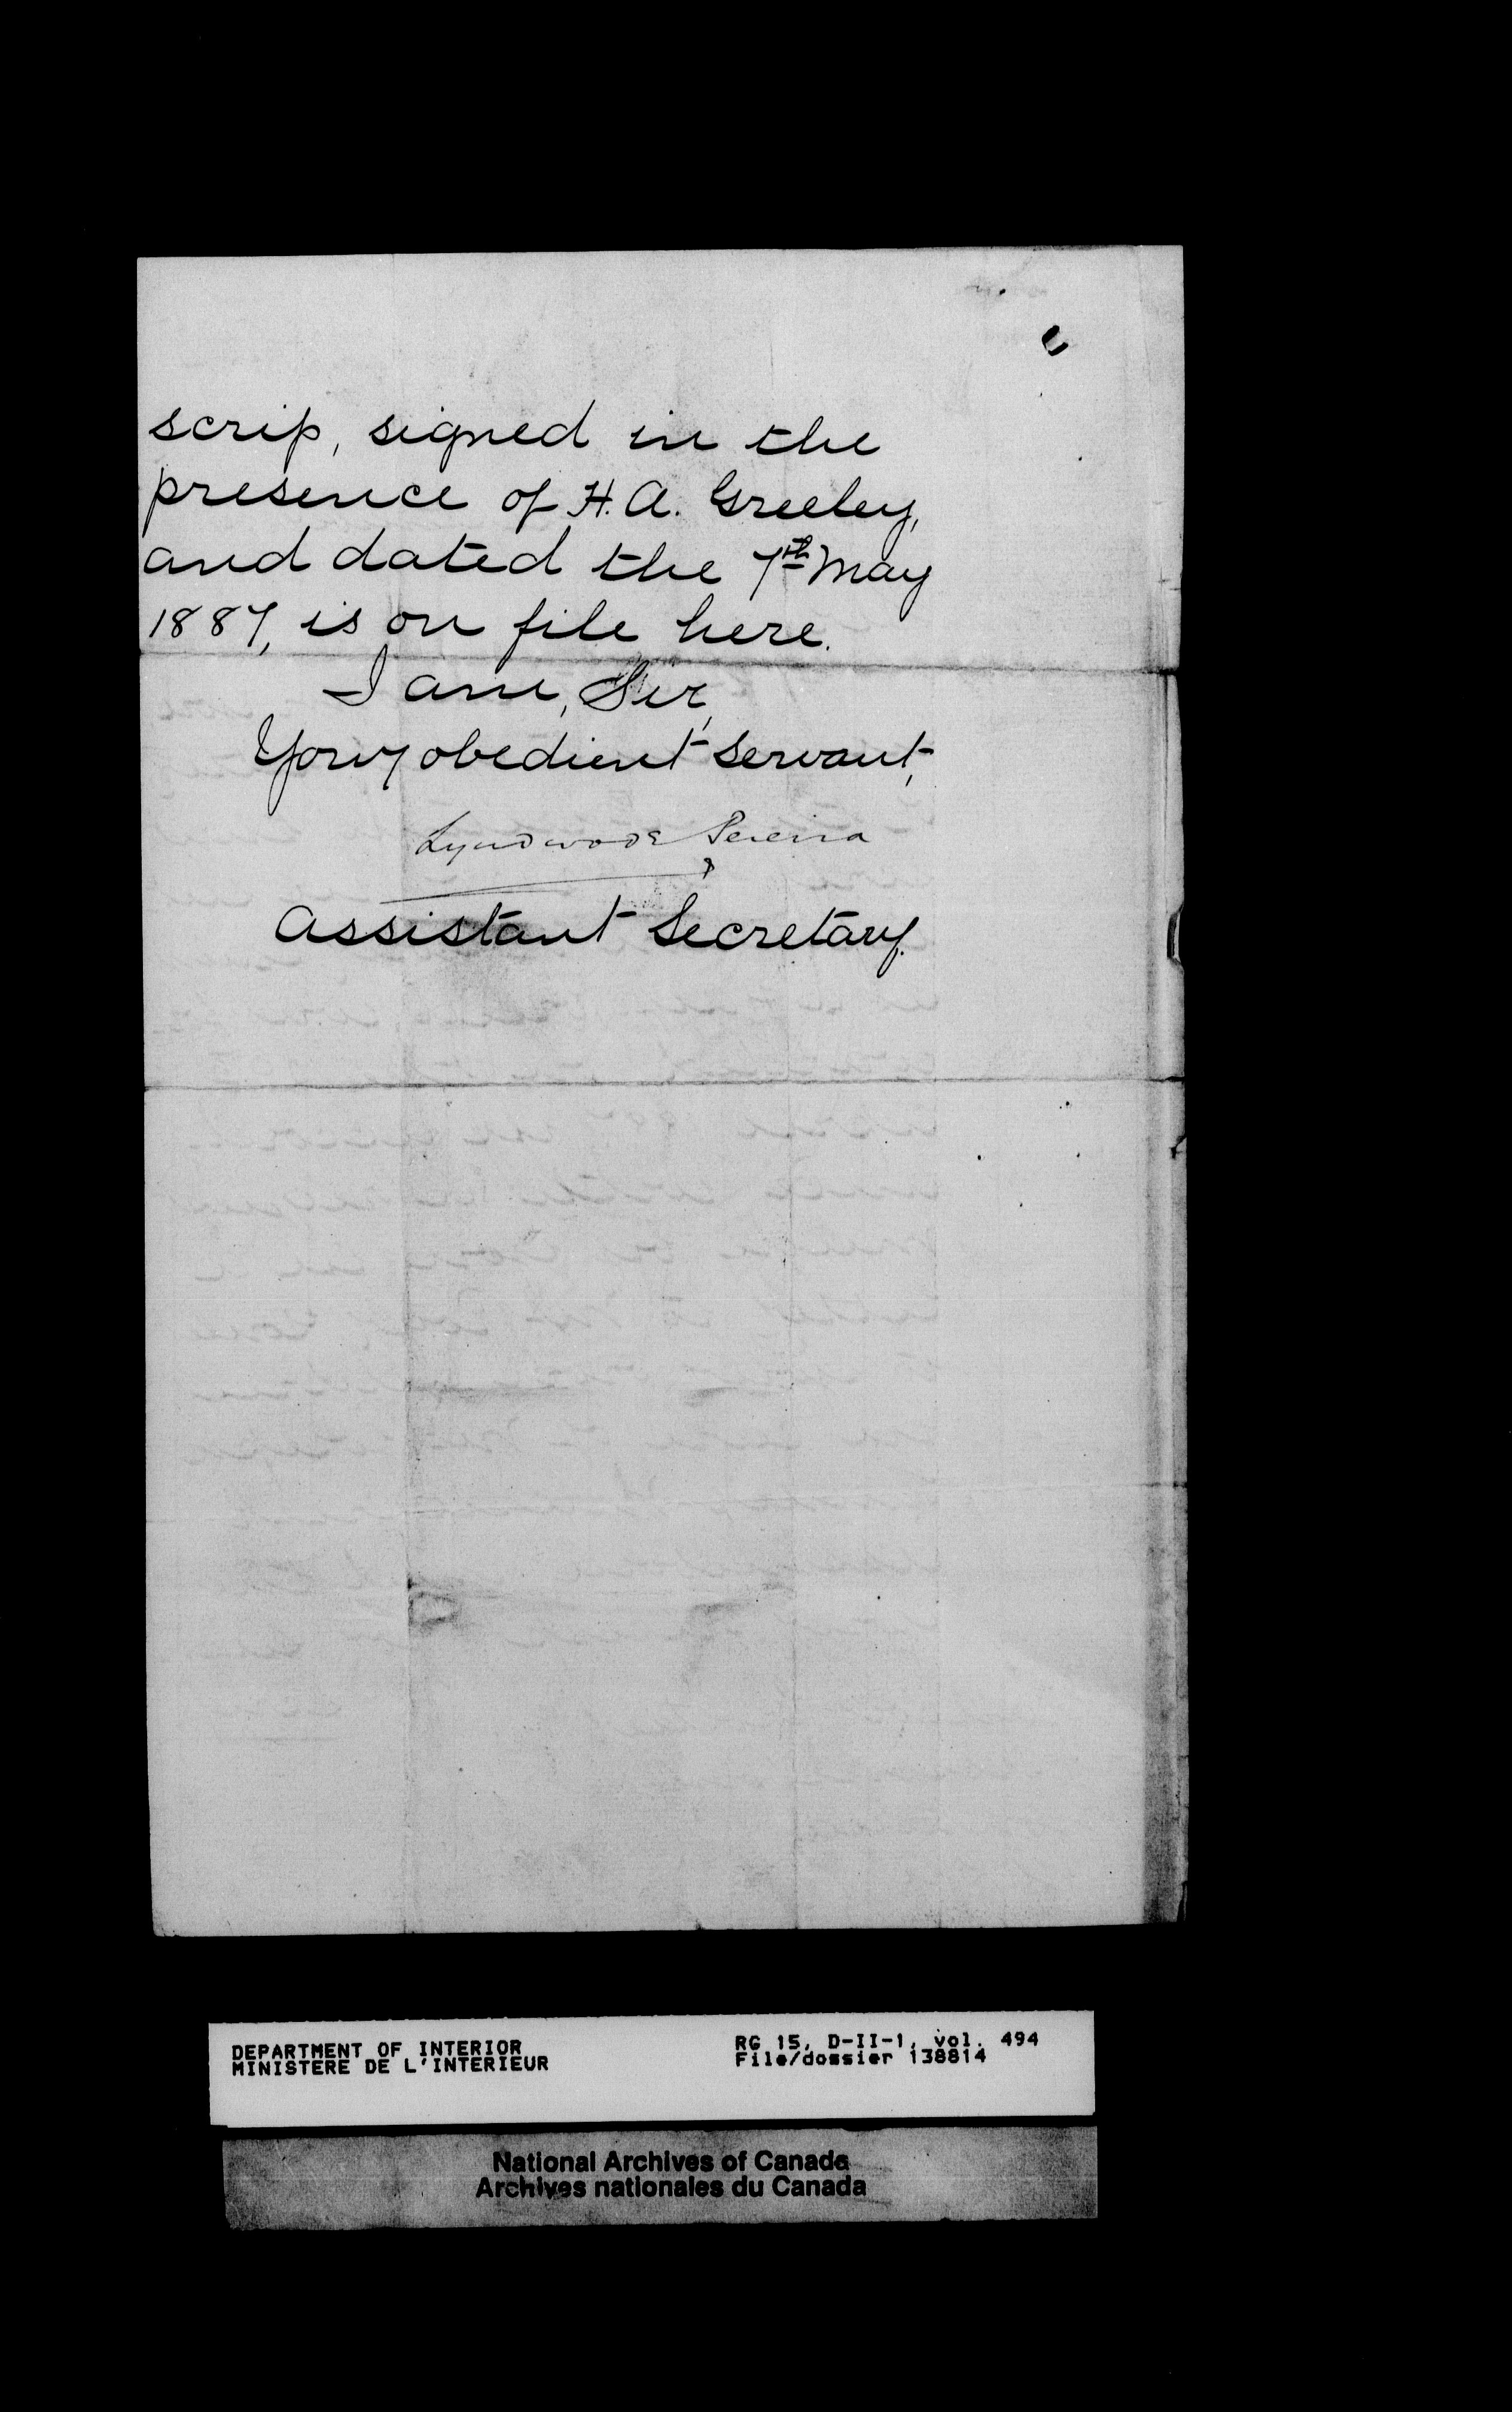 scrip, signed in the
presence of H. A. Greeley,
and dated the 7th May
1887, is on file here.
I am, Sir,
Your obedient servant,
Lyndwode Pereira
Assistant Secretary.
DEPARTMENT OF INTERIOR
MINISTERE DE L'INTERIEUR
RG 15, D-II-1, vol. 494
File/dossier 138814
National Archives of Canada
Archives nationales du Canada